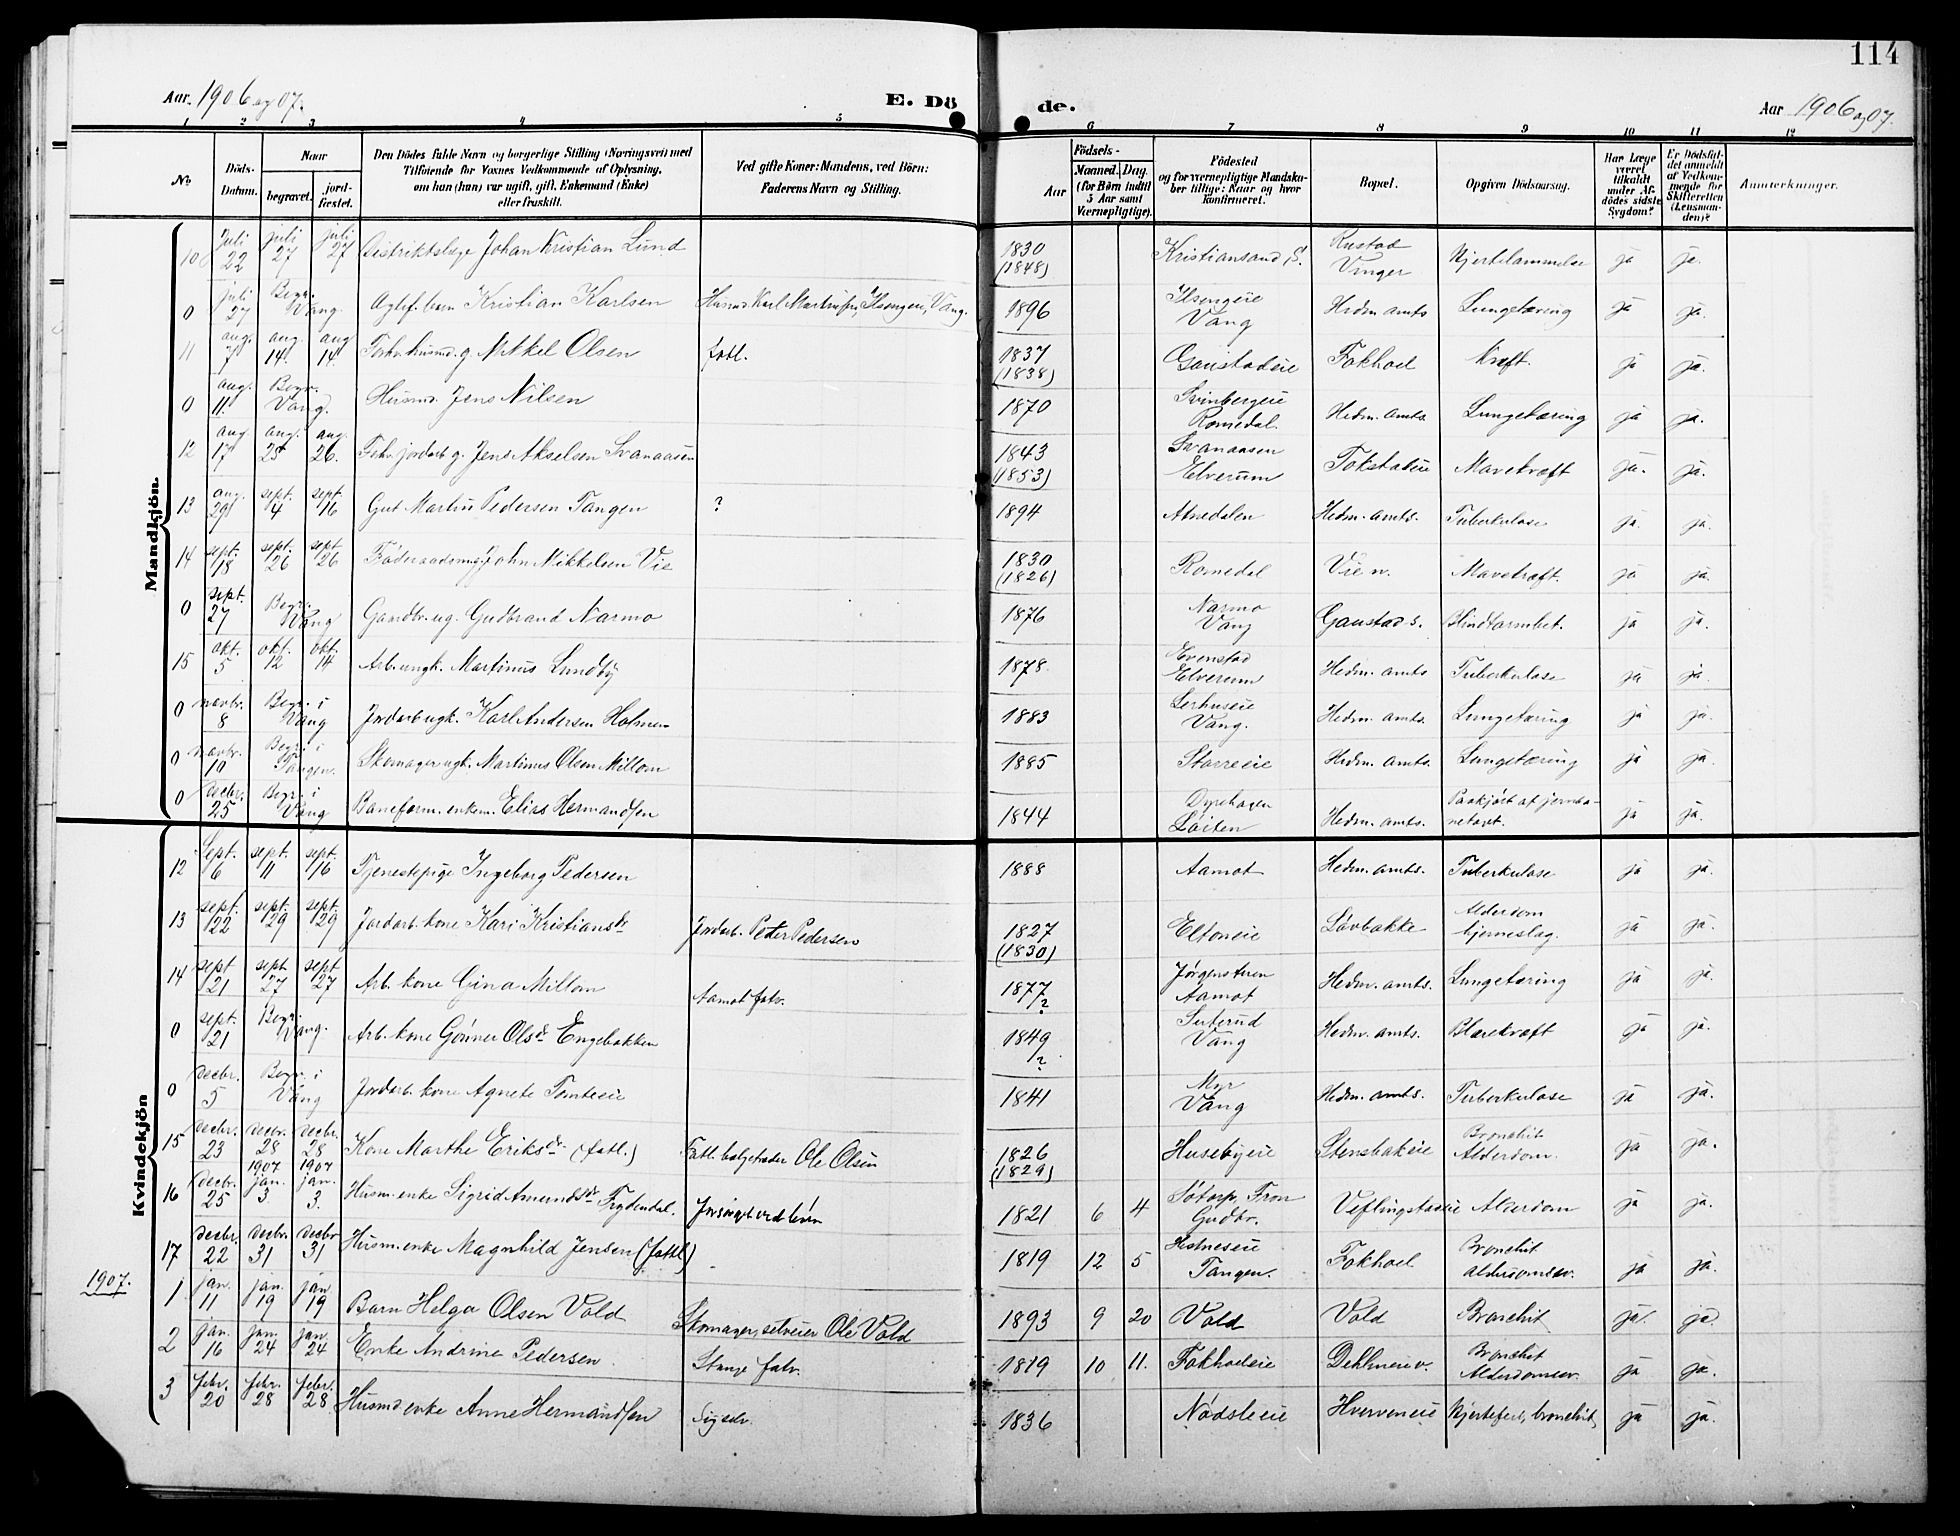 114
Aar. 1906 og 07.
E. Dö
de.
Aar 1906 og 07.
1 2 3 4 5 6 7 8 9 10 11 12
No.
Döds-Datum.
Naar
begravet.
jordfæstet.
Den Dödes fulde Navn og borgerlige Stilling (Næringsvei) med Tilföiende for Voxnes Vedkommende af Oplysning, om hun (han) var ugift, gift, Enkemand (Enke) eller fraskilt.
Ved gifte Koner: Mandens, ved Börn: Faderens Navn og Stilling.
Födsels-
Aar
Maaned. Dag.
(for Börn indtil 5 Aar samt Værnepligtige).
Födested
og for værnepligtige Mandskaber tillige: Naar og hvor konfirmeret.
Bopæl.
Opgiven Dödsaarsag.
Har Læge været tilkaldt under Afdödes sidste Sygdom?
Er Dödsfaldet anmeldt af Vedkommende for Skifteretten (Lensmanden)?
Anmærkninger.
Mandkjön.
10 juli 22 juli 27 juli 27 Distriktslæge Johan Kristian Lund 1830 (1848) Kristiansand, S. Rustad Vinger Hjertelammelse ja ja.
0 juli 27 Begr. Vang. Kristian Karlsen 1896 Ilsengeie Vang Hedm amts Lungetæring ja ja.
11 aug. 7 aug. 14 aug 14. Mikkel Olsen fatl. 1837 (1838) Gaustadeie Fokhoel Kræft. ja ja.
0 aug. 11. Begr. Vang. Husmd. Jens Nilsen 1870 Svinbergeie Romedal. Hedm. amts. Lungetæring ja ja.
12 aug. 17 aug. 25 aug. 26. Jens Akselsen Svanaasen 1843 (1853) Svanaasen Elverum Fokstadeie Mavekræft ja. ja.
13 aug. 29 sept. 4 sept. 16 Gut Martin Pedersen Tangen ? 1894 Atnedalen Hedm. amts. Tuberkulose ja. ja.
14 sept. 18 sept. 26 sept. 26 Föderaadsmg. John Mikkelsen Vie 1830 (1826) Romedal Vie n. Mavekræft. ja ja.
0 sept. 27 Begr. Vang Gaardbr. ug. Gudbrand Narmo 1876 Narmo Vang Gaustad s. Blindtarmbet. ja ja.
15 okt. 5 okt. 12 okt. 14 Arb. ungk. Martinus Lundby 1878. Evenstad Elverum Hedm. amts. Tuberkulose ja ja.
0 novbr. 8 Begr. i Vang Jordarb. ugk. Karl Andersen Holmen 1883 Lerhuseie Vang. Hedm. amts. Lungetæring ja ja.
0 novbr. 19 Begr. i Tangen. Skomager ugk. Martinus Olsen Millom 1885 Starreeie Hedm. amts. Lungetæring ja ja.
0 decbr. 25 Begr. i Vang Baneform. enkem. Elias Hermandsen 1844 Dyrehagen Löiten Hedm. amts. Paakjört af jernbanetoget. ja ja.
Kvindekjön
12 Sept. 6 sept. 11 sept. 16 Tjenestepige Ingeborg Pedersen 1888 Aamot Hedm. amts. Tuberkulose ja ja.
13 sept. 22 sept. 29 sept. 29 Jordarb. kone Kari Kristiansdr. Jordarb. Peter Pedersen 1827 (1830) Eltoneie Lövbakke Alderdom hjerneslag. ja ja.
14 sept 21 sept. 27 sept. 27 Arb. kone Gina Millom Aamot fatv. 1877 ? Aamot Hedm. amts. Lungetæring ja ja.
0 sept. 21 Begr. Vang. Arb. kone Gönner Olsdr. Engebakken 1849 ? Suterud Vang Hedm. amts. Blærekræft ja ja.
0 decbr. 5 Begr. i Vang Jordarb. kone Agnete Tomteeie 1841 Myr Vang Hedm. amts. Tuberkulose ja ja.
15 decbr. 23 decbr. 28 decbr. 28 Kone Marthe Eriksdr. (fatl.) Ole Olsen 1826 (1829) Husebyeie Stensbakeie Bronchit Alderdom. ja ja.
16 decbr. 25 1907 jan. 3. 1907 jan. 3. Husm. enke Sigrid Amundsdr. Frydendal. Forsörget ved börn 1821 6 4 Sötorp, Fron Gudbr. Veflingstadeie Alderdom ja ja.
17 decbr. 22 decbr. 31 decbr 31 Husm. enke Magnhild Jensen (fattl) 1819 12 5 Holmeseie Tangen. Fokhoel Bronchit alderdomssv. ja ja.
1907.
1 jan. 11 jan. 19 jan. 19 Barn Helga Olsen Vold Skomager, selveier Ole Vold 1893 9 20 Vold Vold Bronchit ja. ja.
2 jan. 16 jan. 24 jan. 24 Enke Andrine Pedersen. Stange fatv. 1819 10 11. Fokhoeleie Dehlineie v. Bronchit Alderdomssv. ja ja.
3 febr. 20 febr. 28 febr. 28 Husmd. enke Anne Hermandsen 1836 Nödsleeie Hverveneie Hjertefeil, bronchit, ja ja.